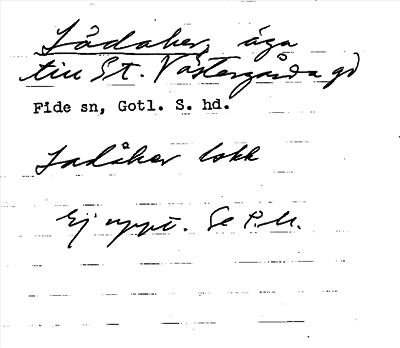 Lådaker, äga
till St. Västergårda gd
Fide sn, Gotl. S. hd.
Ladåker lokk
Ej uppt. Se P.M.